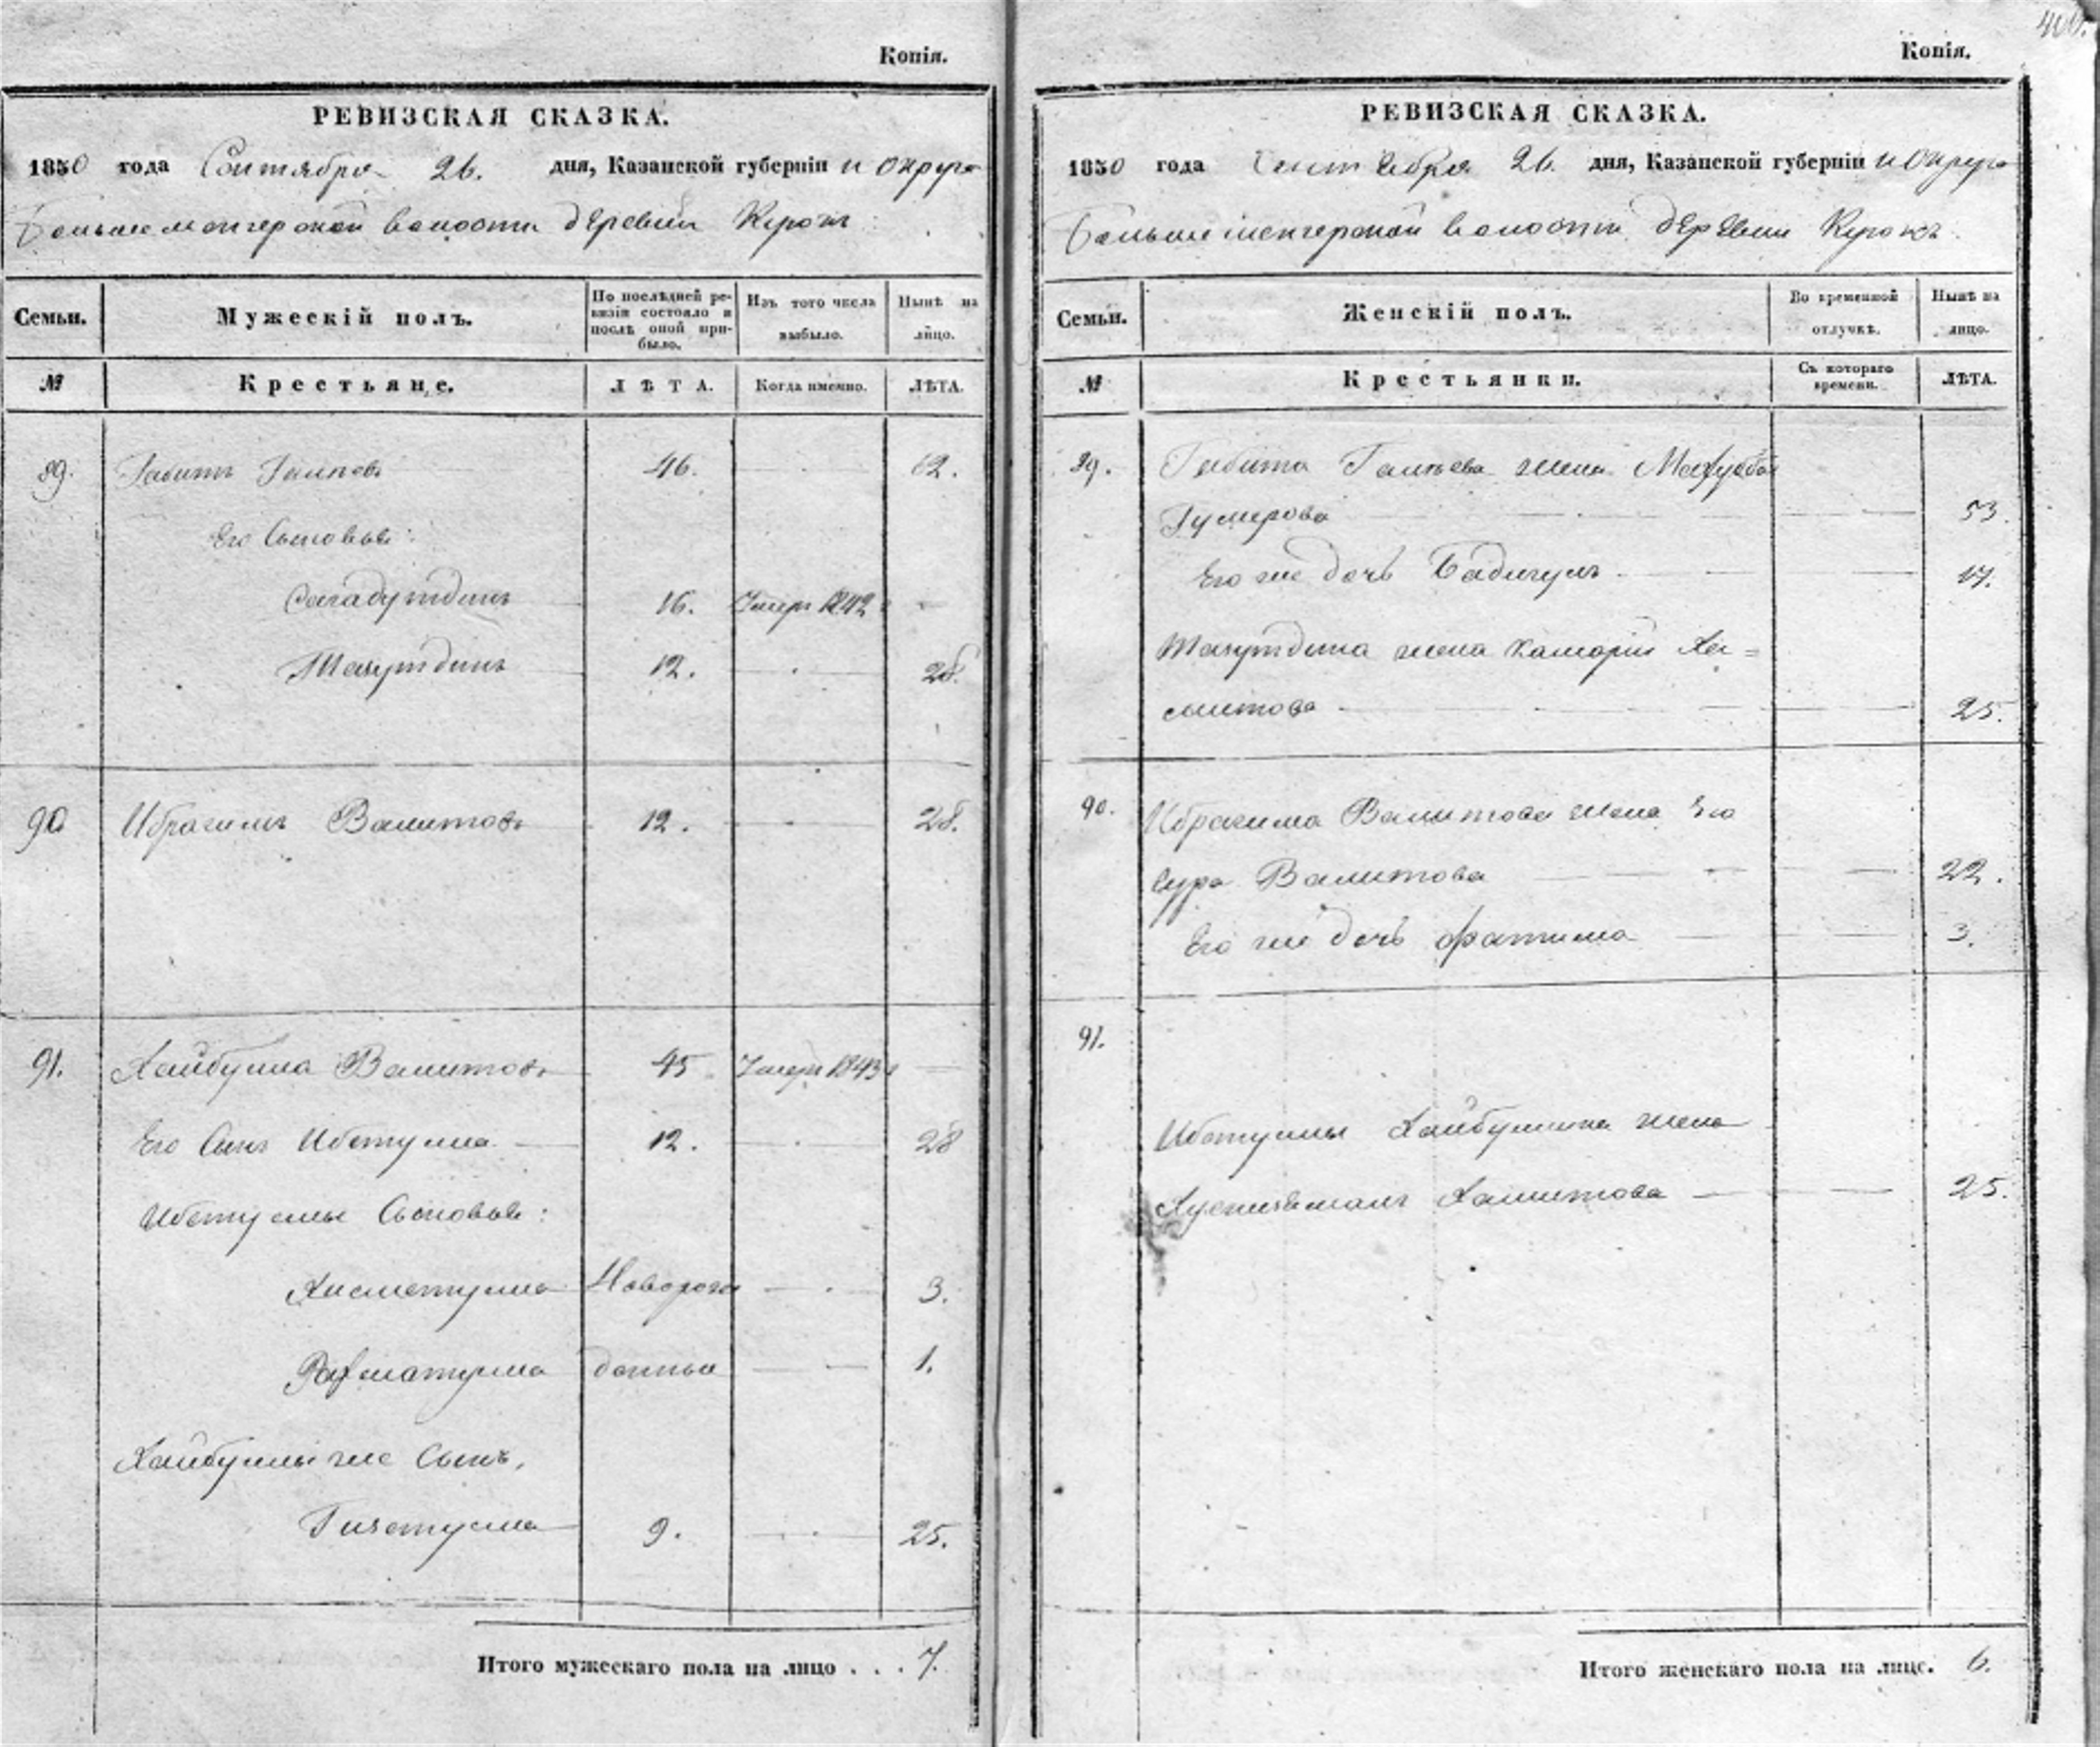 Копія.
РЕВИЗСКАЯ СКАЗКА.
1850 года Сентября 26. дня, Казанской губерніи и округа
Большеменгерской волости деревни
Семьи.
Мужескій полъ.
По послѣдней ревизіи состояло и послѣ оной прибыло.
Изъ того числа выбыло.
Нынѣ на лицо.
№
Крестьяне.
ЛѢТА.
Когда именно.
ЛѢТА.
89. Габитъ 46. 62.
Его Сыновья:
Сагадутдинъ 16. Умеръ 1842
Тазутдинъ 12. 28.
90 Ибрагимъ Валитовъ 12. 28.
91. Хайбулла Валитовъ 45 Умеръ 1843
Его Сынъ Ибетулла 12. 28
Ибетуллы Сыновья:
Хисметулла Новорож 3.
Рахматулла денные 1.
Хайбуллы же Сынъ,
Гизетулла 9. 25.
Итого мужескаго пола на лицо . . . 7.
400.
Копія.
РЕВИЗСКАЯ СКАЗКА.
1850 года Сентября 26. дня, Казанской губерніи и округа
Большеменгерской волости деревни
Семьи.
Женскій полъ.
Во временной отлучкѣ.
Нынѣ на лицо.
№
Крестьянки.
Съ котораго времени.
ЛѢТА.
89. Габита жена Махубба
Гумерова 53.
Его же дочь Бадигулъ 17.
Тазутдина жена Камария Ха=
митова 25.
90. Ибрагима Валитова жена Его
Сура Валитова 22.
Его же дочь Фатима 3.
91.
Ибетуллы Хайбуллина жена
Хамитова 25.
Итого женскаго пола на лицо. 6.